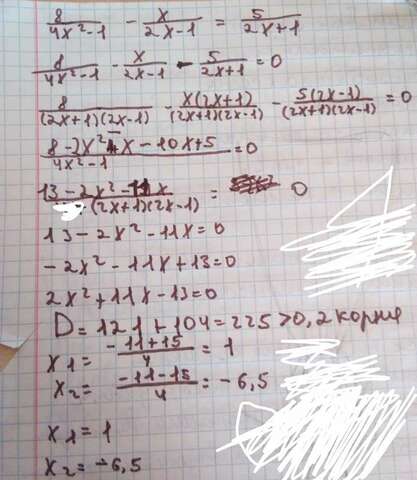 8/(4x²-1) - x/(2x-1) = 5/(2x+1)
8/(4x²-1) - x/(2x-1) - 5/(2x+1) = 0
8/((2x+1)(2x-1)) - x(2x+1)/((2x+1)(2x-1)) - 5(2x-1)/((2x+1)(2x-1)) = 0
(8-2x²-x-10x+5)/(4x²-1) = 0
(13-2x²-11x)/((2x+1)(2x-1)) = 0
13-2x²-11x=0
-2x²-11x+13=0
2x²+11x-13=0
D=121+104=225>0, 2 корня
x1= (-11+15)/4 = 1
x2= (-11-15)/4 = -6,5
x1=1
x2=-6,5